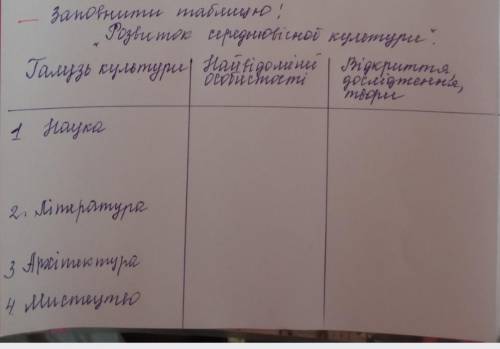 — Заповнити таблицю!
"Розвиток середновісної культури".
Галузь культури
Найвідоміші особистості
Відкриття, дослідження, твори
1 Наука
2. Література
3 Архітектура
4. Мистецтво